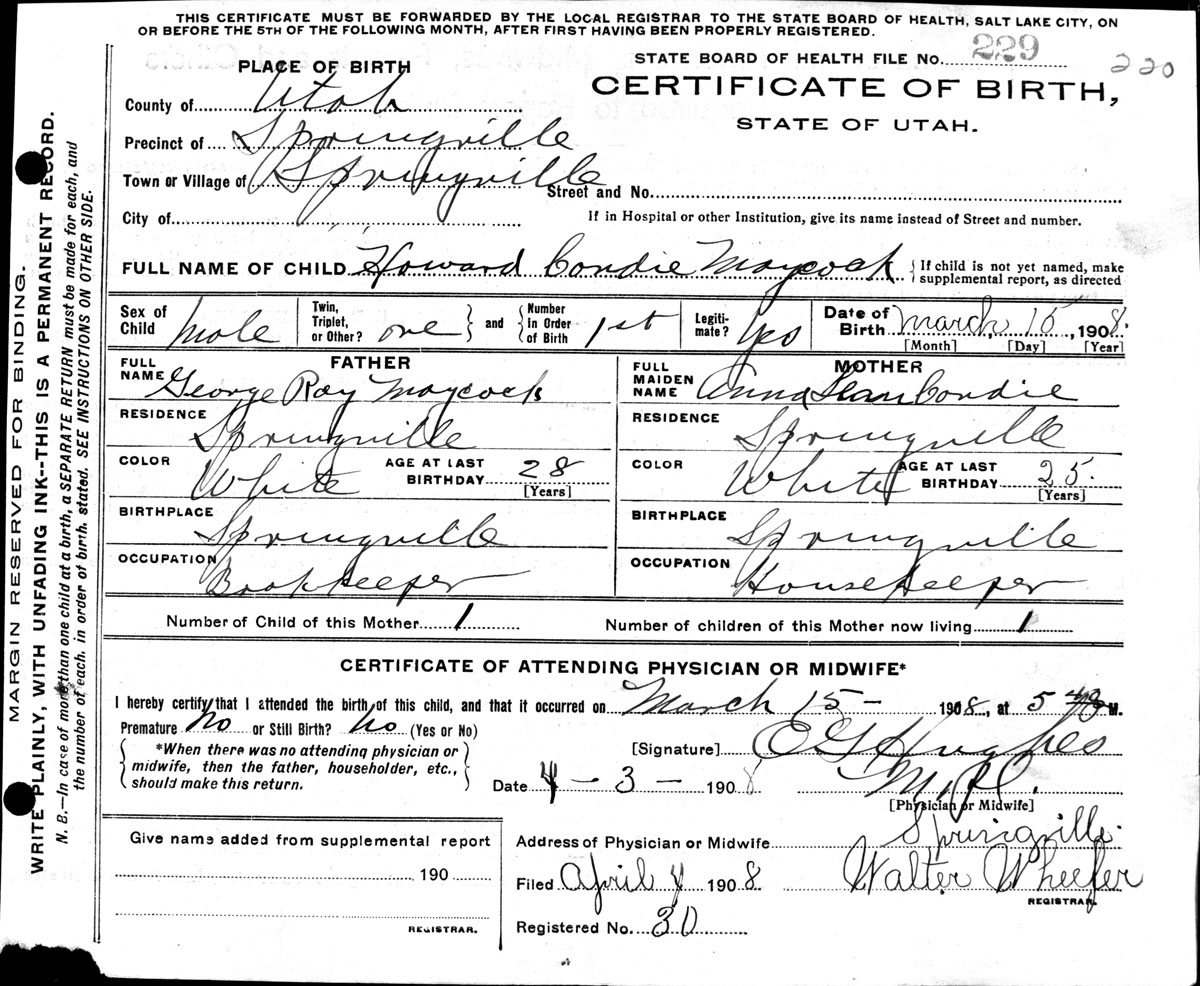 THIS CERTIFICATE MUST BE FORWARDED BY THE LOCAL REGISTRAR TO THE STATE BOARD OF HEALTH, SALT LAKE CITY, ON
OR BEFORE THE 5TH OF THE FOLLOWING MONTH, AFTER FIRST HAVING BEEN PROPERLY REGISTERED.
STATE BOARD OF HEALTH FILE No. 229
220
PLACE OF BIRTH
CERTIFICATE OF BIRTH,
STATE OF UTAH.
County of Utah
Precinct of Springville
Town or Village of Springville Street and No.
City of If in Hospital or other Institution, give its name instead of Street and number.
FULL NAME OF CHILD Howard Condie Maycock { If child is not yet named, make supplemental report, as directed
Sex of Child Male Twin, Triplet, or Other? one } and { Number in Order of Birth 1st Legiti-mate? Yes Date of Birth March 15, 1908.
[Month] [Day] [Year]
FATHER
FULL NAME George Ray Maycock
RESIDENCE Springville
COLOR White AGE AT LAST BIRTHDAY 28 [Years]
BIRTHPLACE Springville
OCCUPATION Bookkeeper
MOTHER
FULL MAIDEN NAME Anna Condie
RESIDENCE Springville
COLOR White AGE AT LAST BIRTHDAY 25. [Years]
BIRTHPLACE Springville
OCCUPATION Housekeeper
Number of Child of this Mother 1 Number of children of this Mother now living 1
CERTIFICATE OF ATTENDING PHYSICIAN OR MIDWIFE*
I hereby certify that I attended the birth of this child, and that it occurred on March 15 - 1908, at 5 M.
Premature? No or Still Birth? No (Yes or No)
*When there was no attending physician or
midwife, then the father, householder, etc.,
should make this return.
[Signature] E G Hughes
M.D.
Date 4 - 3 - 1908
[Physician or Midwife]
Give name added from supplemental report
190
REGISTRAR.
Address of Physician or Midwife Springville
Filed April 4 1908 Walter Wheeler
REGISTRAR.
Registered No. 30
MARGIN RESERVED FOR BINDING.
WRITE PLAINLY, WITH UNFADING INK--THIS IS A PERMANENT RECORD.
N. B.—In case of more than one child at a birth, a SEPARATE RETURN must be made for each, and
the number of each, in order of birth, stated. SEE INSTRUCTIONS ON OTHER SIDE.